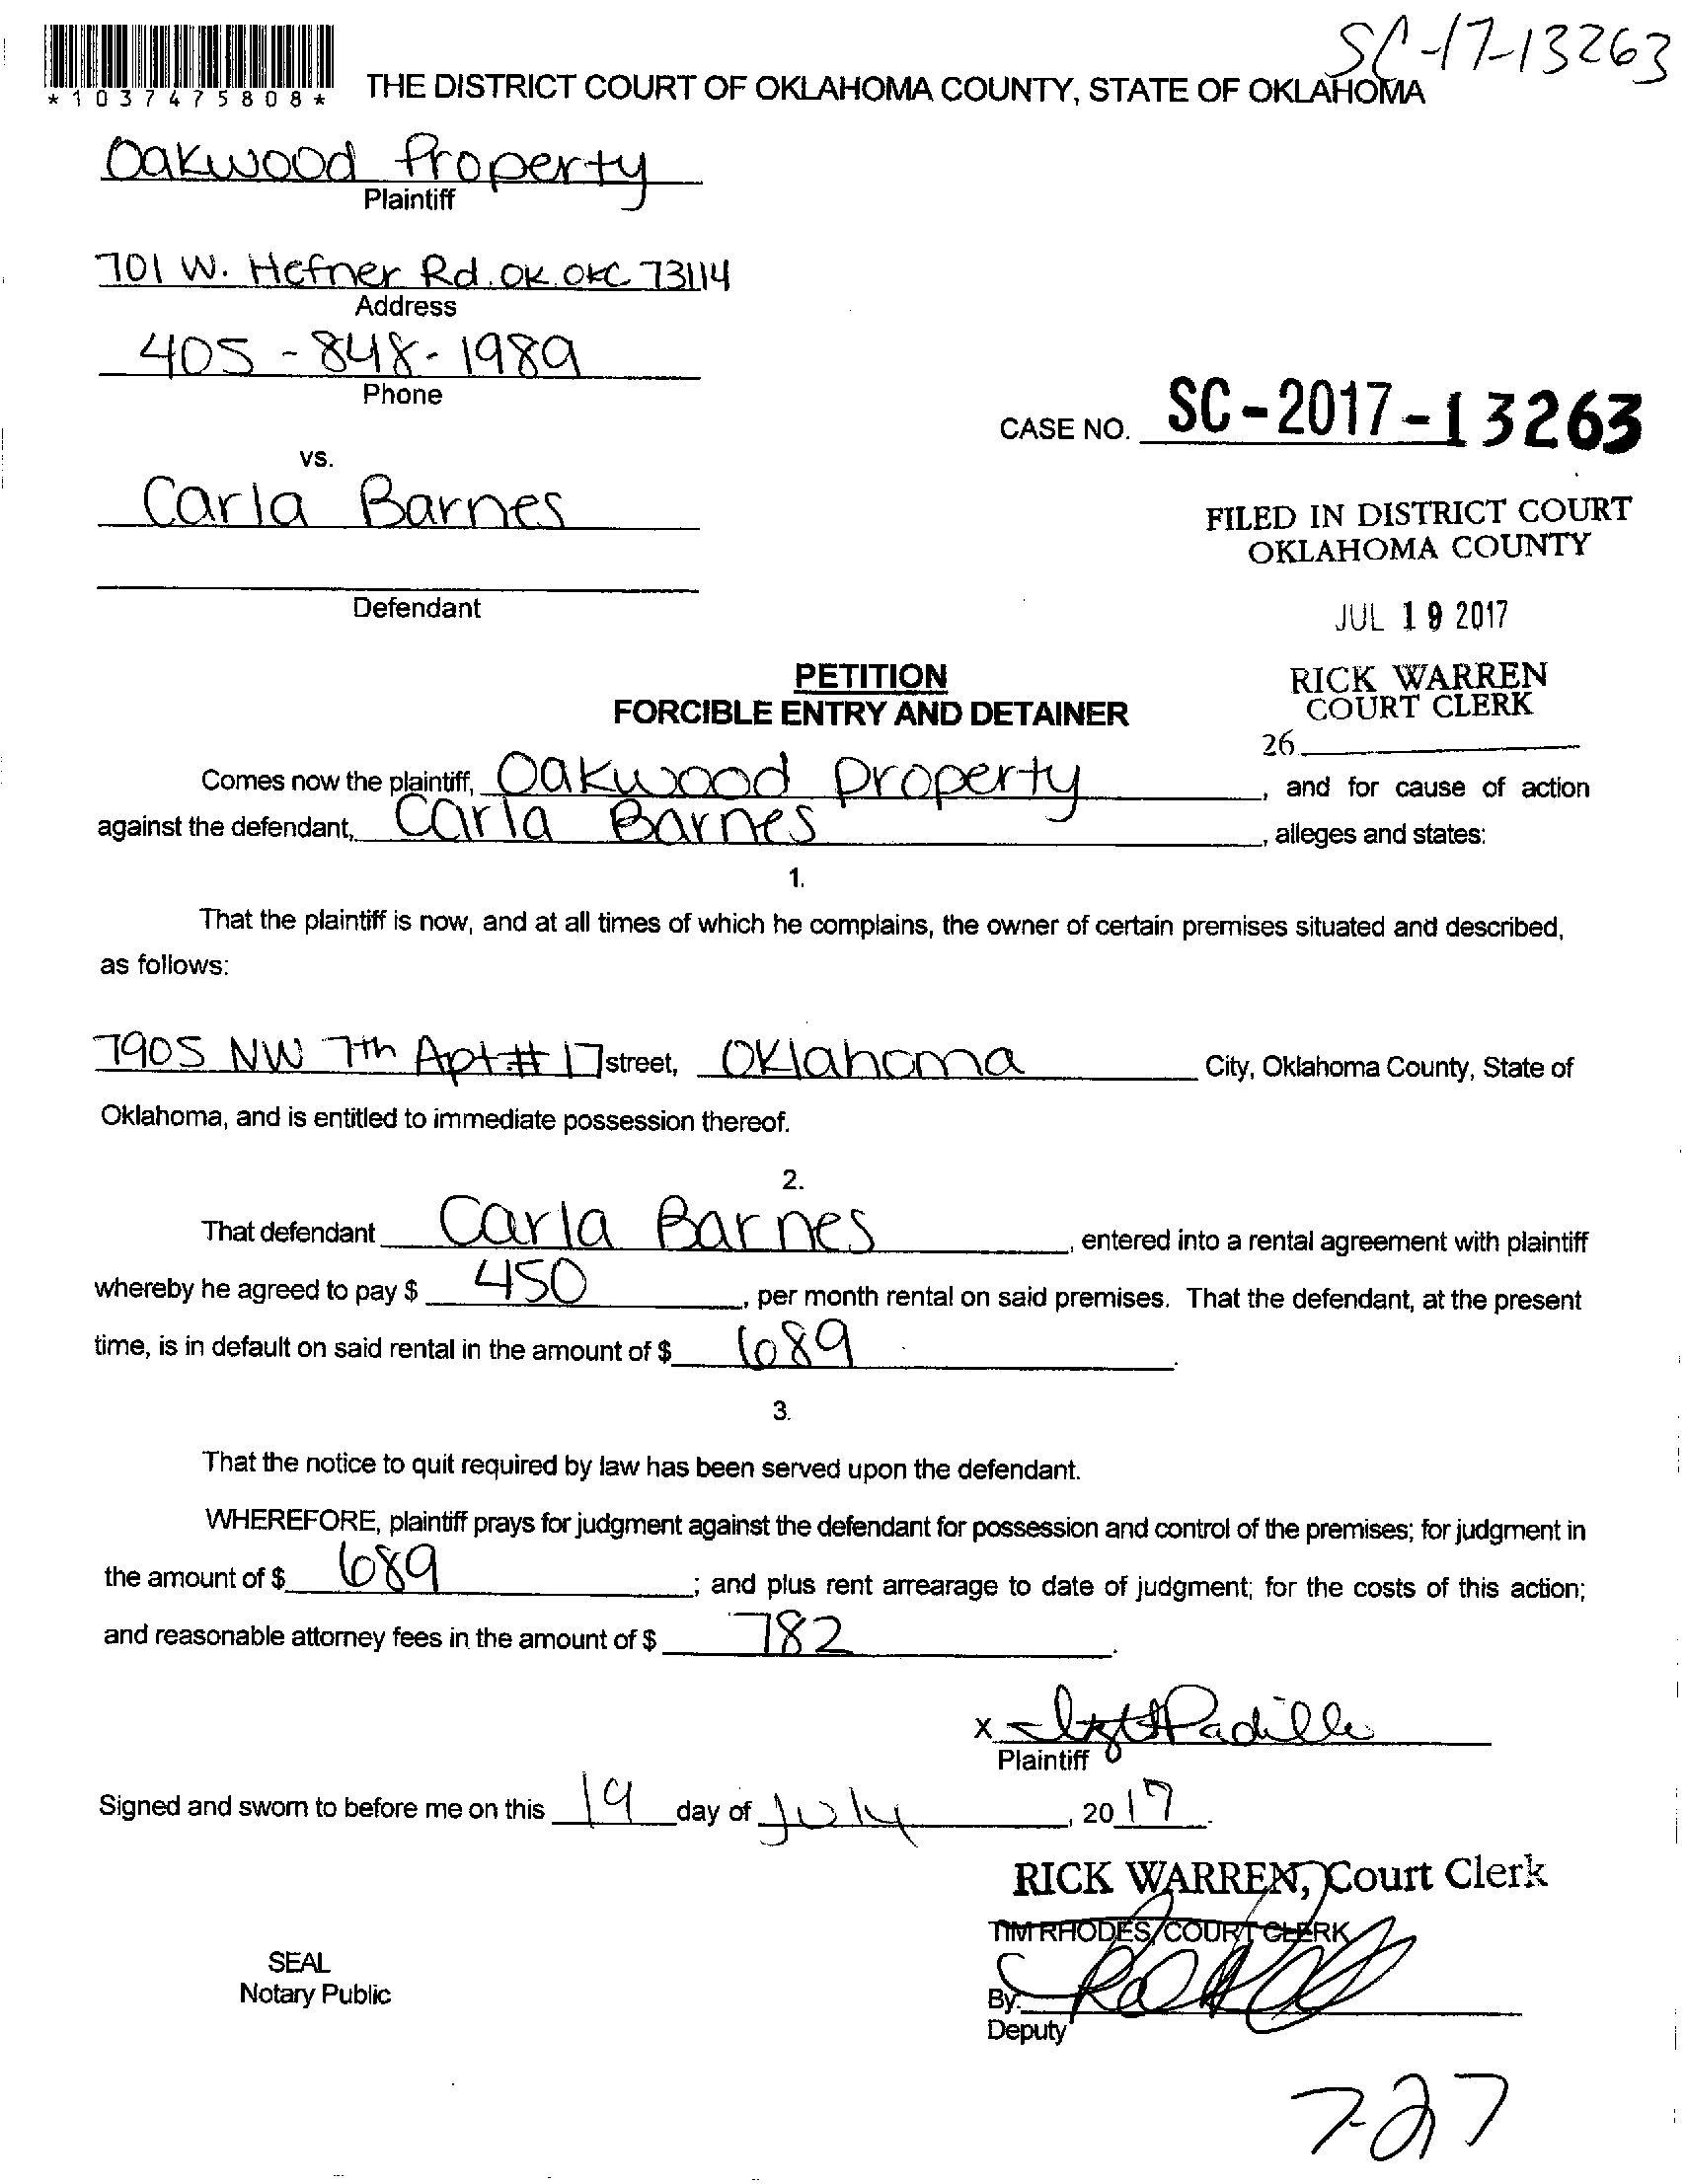 SC-17-13263
*1037475808*
THE DISTRICT COURT OF OKLAHOMA COUNTY, STATE OF OKLAHOMA
Oakwood Property
Plaintiff
701 W. Hefner Rd. OK. OKC 73114
Address
405-848-1989
Phone
CASE NO. SC-2017-13263
vs.
Carla Barnes
FILED IN DISTRICT COURT
OKLAHOMA COUNTY
Defendant
JUL 19 2017
PETITION
FORCIBLE ENTRY AND DETAINER
RICK WARREN
COURT CLERK
26
Comes now the plaintiff, Oakwood Property, and for cause of action
against the defendant, Carla Barnes, alleges and states:
1.
That the plaintiff is now, and at all times of which he complains, the owner of certain premises situated and described,
as follows:
7905 NW 7th Apt # 17 street, Oklahoma City, Oklahoma County, State of
Oklahoma, and is entitled to immediate possession thereof.
2.
That defendant Carla Barnes, entered into a rental agreement with plaintiff
whereby he agreed to pay $ 450, per month rental on said premises. That the defendant, at the present
time, is in default on said rental in the amount of $ 689.
3.
That the notice to quit required by law has been served upon the defendant.
WHEREFORE, plaintiff prays for judgment against the defendant for possession and control of the premises; for judgment in
the amount of $ 689; and plus rent arrearage to date of judgment; for the costs of this action;
and reasonable attorney fees in the amount of $ 782.
x Padilla
Plaintiff
Signed and sworn to before me on this 19 day of July, 2017.
RICK WARREN, Court Clerk
TIM RHODES, COURT CLERK
SEAL
Notary Public
By:
Deputy
7-27